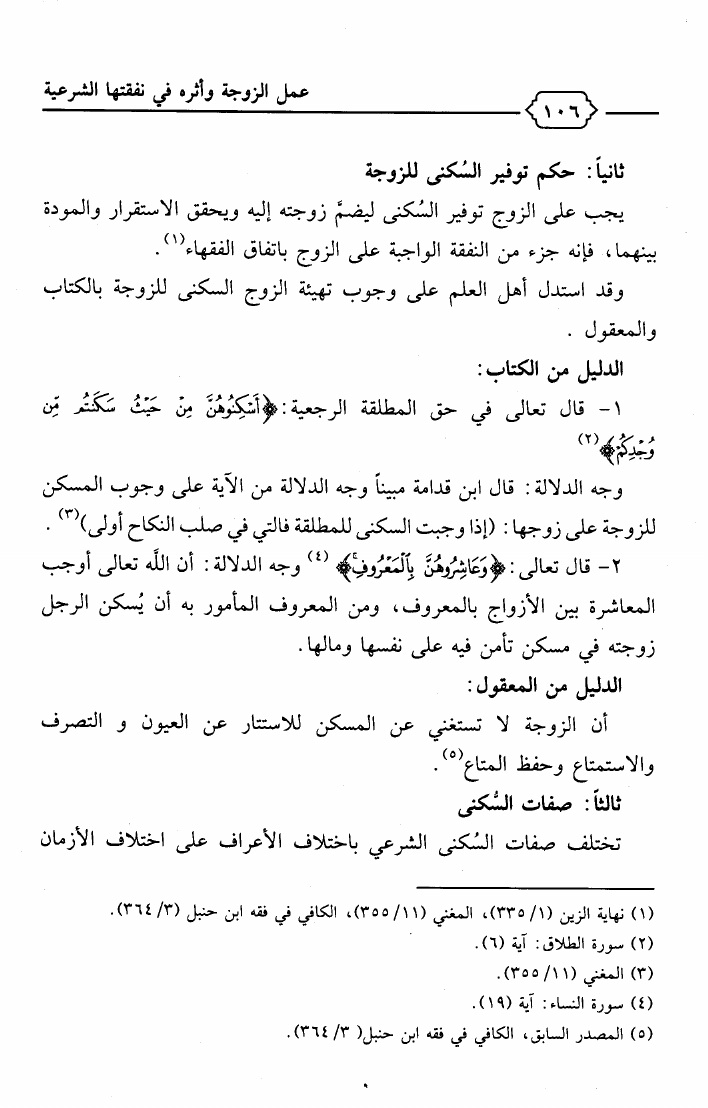 عمل الزوجة وأثره في نفقتها الشرعية
١٠٦
ثانياً: حكم توفير السُكنى للزوجة
يجب على الزوج توفير السُكنى ليضمَّ زوجته إليه ويحقق الاستقرار والمودة
بينهما، فإنه جزء من النفقة الواجبة على الزوج باتفاق الفقهاء(١).
وقد استدل أهل العلم على وجوب تهيئة الزوج السكنى للزوجة بالكتاب
والمعقول .
الدليل من الكتاب:
١- قال تعالى في حق المطلقة الرجعية: ﴿أَسْكِنُوهُنَّ مِنْ حَيْثُ سَكَنتُم مِّن
وُجْدِكُمْ﴾(٢)
وجه الدلالة: قال ابن قدامة مبيناً وجه الدلالة من الآية على وجوب المسكن
للزوجة على زوجها: (إذا وجبت السكنى للمطلقة فالتي في صلب النكاح أولى)(٣) .
٢- قال تعالى: ﴿وَعَاشِرُوهُنَّ بِالْمَعْرُوفِ﴾ (٤) وجه الدلالة: أن اللَّه تعالى أوجب
المعاشرة بين الأزواج بالمعروف، ومن المعروف المأمور به أن يُسكن الرجل
زوجته في مسكن تأمن فيه على نفسها ومالها.
الدليل من المعقول:
أن الزوجة لا تستغني عن المسكن للاستتار عن العيون و التصرف
والاستمتاع وحفظ المتاع(٥).
ثالثاً: صفات السُّكنى
تختلف صفات السُكنى الشرعي باختلاف الأعراف على اختلاف الأزمان
(١) نهاية الزين (١/ ٣٣٥)، المغني (١١/ ٣٥٥)، الكافي في فقه ابن حنبل (٣/ ٣٦٤).
(٢) سورة الطلاق: آية (٦).
(٣) المغني (١١/ ٣٥٥).
(٤) سورة النساء: آية (١٩).
(٥) المصدر السابق، الكافي في فقه ابن حنبل( ٣/ ٣٦٤).